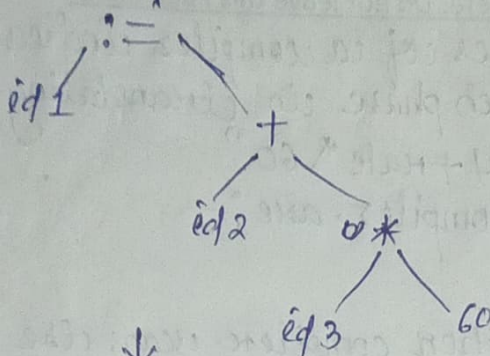 :=
id1
+
id2 *
id3 60